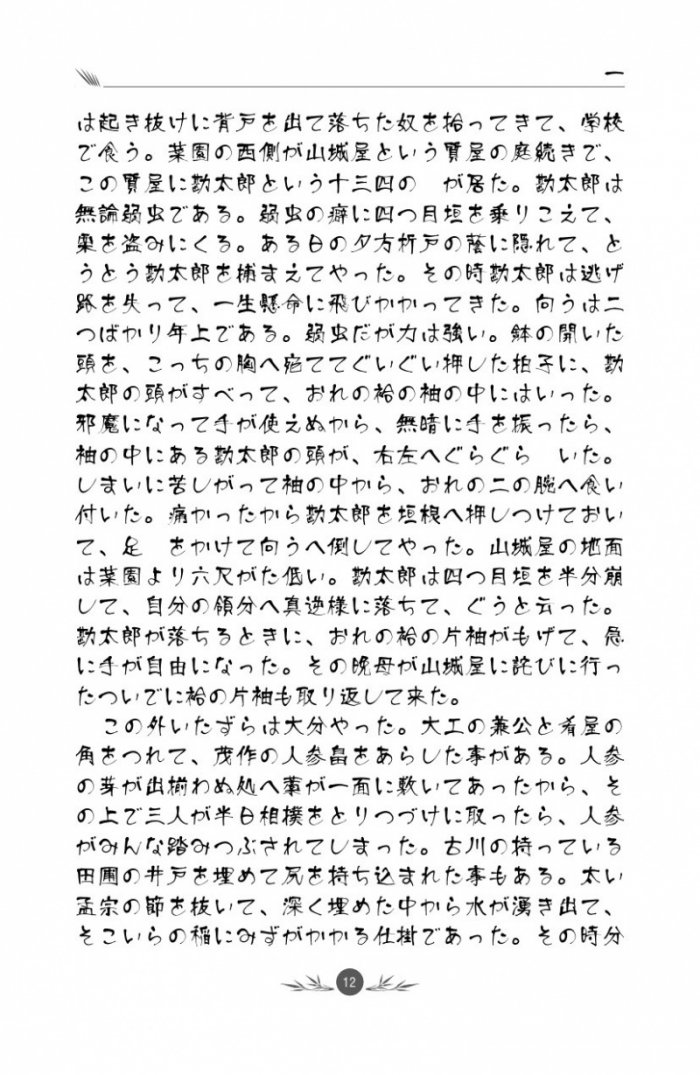 一
は起き抜けに背戸を出て落ちた奴を拾ってきて、学校
で食う。菜園の西側が山城屋という質屋の庭続きで、
この質屋に勘太郎という十三四の　が居た。勘太郎は
無論弱虫である。弱虫の癖に四つ目垣を乗りこえて、
栗を盗みにくる。ある日の夕方折戸の蔭に隠れて、と
うとう勘太郎を捕まえてやった。その時勘太郎は逃げ
路を失って、一生懸命に飛びかかってきた。向うは二
つばかり年上である。弱虫だが力は強い。鉢の開いた
頭を、こっちの胸へ宛ててぐいぐい押した拍子に、勘
太郎の頭がすべって、おれの袷の袖の中にはいった。
邪魔になって手が使えぬから、無暗に手を振ったら、
袖の中にある勘太郎の頭が、右左へぐらぐら　いた。
しまいに苦しがって袖の中から、おれの二の腕へ食い
付いた。痛かったから勘太郎を垣根へ押しつけておい
て、足　をかけて向うへ倒してやった。山城屋の地面
は菜園より六尺がた低い。勘太郎は四つ目垣を半分崩
して、自分の領分へ真逆様に落ちて、ぐうと云った。
勘太郎が落ちるときに、おれの袷の片袖がもげて、急
に手が自由になった。その晩母が山城屋に詫びに行っ
たついでに袷の片袖も取り返して来た。
この外いたずらは大分やった。大工の兼公と肴屋の
角をつれて、茂作の人参畠をあらした事がある。人参
の芽が出揃わぬ処へ藁が一面に敷いてあったから、そ
の上で三人が半日相撲をとりつづけに取ったら、人参
がみんな踏みつぶされてしまった。古川の持っている
田圃の井戸を埋めて尻を持ち込まれた事もある。太い
孟宗の節を抜いて、深く埋めた中から水が湧き出て、
そこいらの稲にみずがかかる仕掛であった。その時分
12